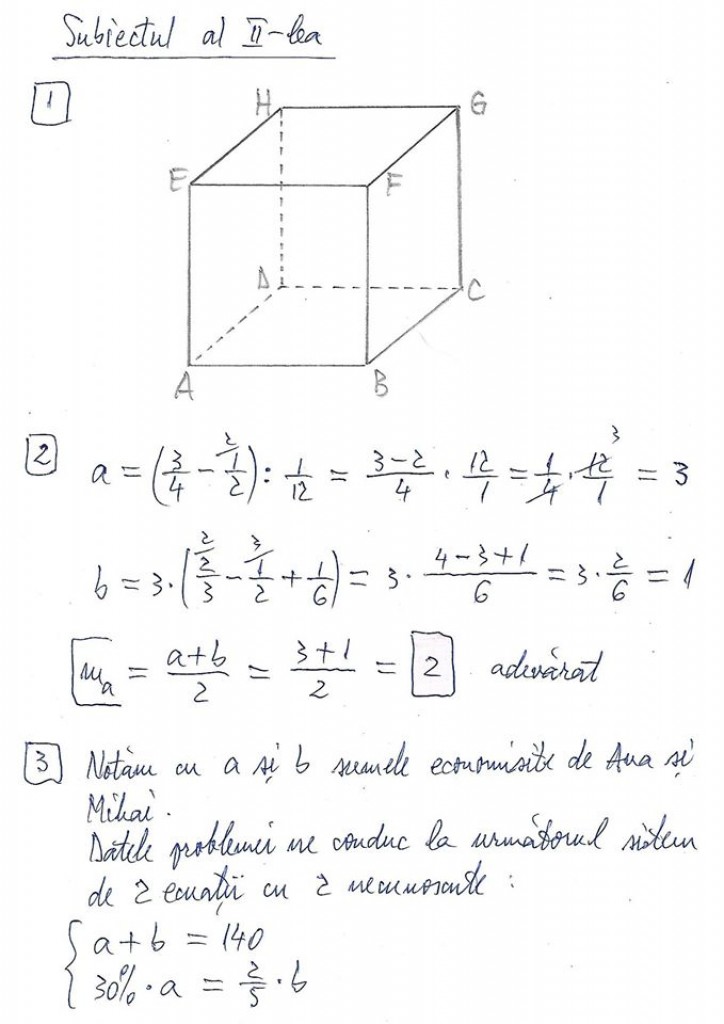 Subiectul al II-lea
1
H G
E F
D C
A B
2 a = (3/4 - ²⁾1/2) : 1/12 = 3-2/4 · 12/1 = 1/4 · 12/1 ³ = 3
b = 3·(²⁾2/3 - ³⁾1/2 + 1/6) = 3 · 4-3+1/6 = 3 · 2/6 = 1
mₐ = a+b/2 = 3+1/2 = 2 adevărat
3 Notăm cu a și b sumele economisite de Ana și
Mihai.
Datele problemei ne conduc la următorul sistem
de 2 ecuații cu 2 necunoscute :
{ a+b = 140
30% · a = 2/5 · b